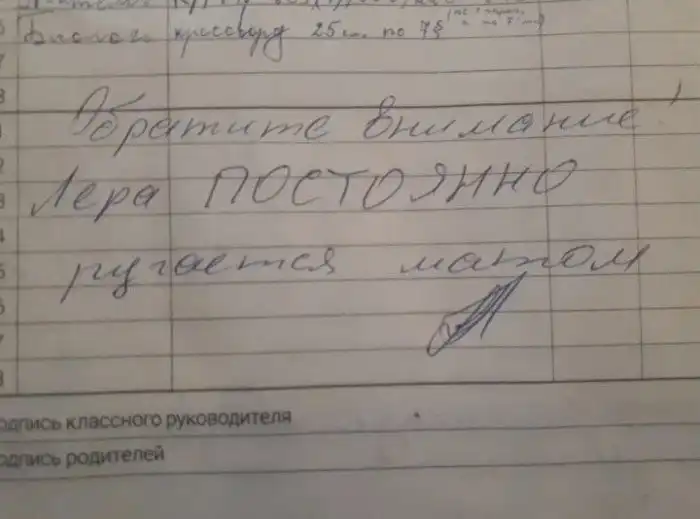 кроссворд 25сл. по 7§
Обратите внимание!
Лера ПОСТОЯННО
ругается матом
одпись классного руководителя
одпись родителей